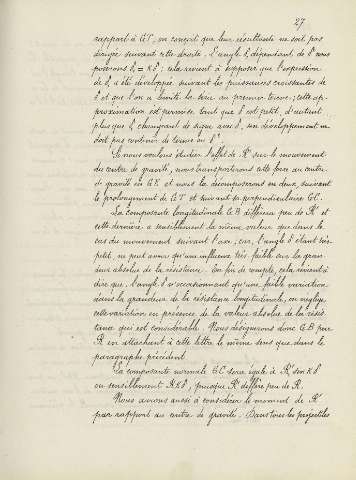 27
rapport à GT, on conçoit que leur résultante ne soit pas
dirigée suivant cette droite. L'angle δ, dépendant de δ nous
poserons δ, = Kδ; cela revient à supposer que l'expression
de δ, a été développée suivant les puissances croissantes de
δ et que l'on a limité la série au premier terme; cette ap-
proximation est permise tant que δ est petit, d'autant
plus que δ, changeant de signe avec δ, son développement ne
doit pas contenir de terme en δ².
Si nous voulons étudier l'effet de R' sur le mouvement
du centre de gravité, nous transporterons cette force au centre
de gravité en GR et nous la décomposerons en deux, suivant
le prolongement de GT et suivant sa perpendiculaire GC.
La composante longitudinale GB diffèrera peu de R' et
cette dernière a sensiblement la même valeur que dans le
cas du mouvement suivant l'axe, car, l'angle δ étant très
petit, ne peut avoir qu'une influence très faible sur la gran-
deur absolue de la résistance. En fin de compte, cela revient à
dire que, l'angle δ n'occasionnant qu'une faible variation
dans la grandeur de la résistance longitudinale, on néglige
cette variation en présence de la valeur absolue de la résis-
tance qui est considérable. Nous désignerons donc GB par
R en attachant à cette lettre le même sens que dans le
paragraphe précédent.
La composante normale GC sera égale à R' sin Kδ
ou sensiblement RKδ, puisque R' diffère peu de R.
Nous avions aussi à considérer le moment de R'
par rapport au centre de gravité. Dans tous les projectiles